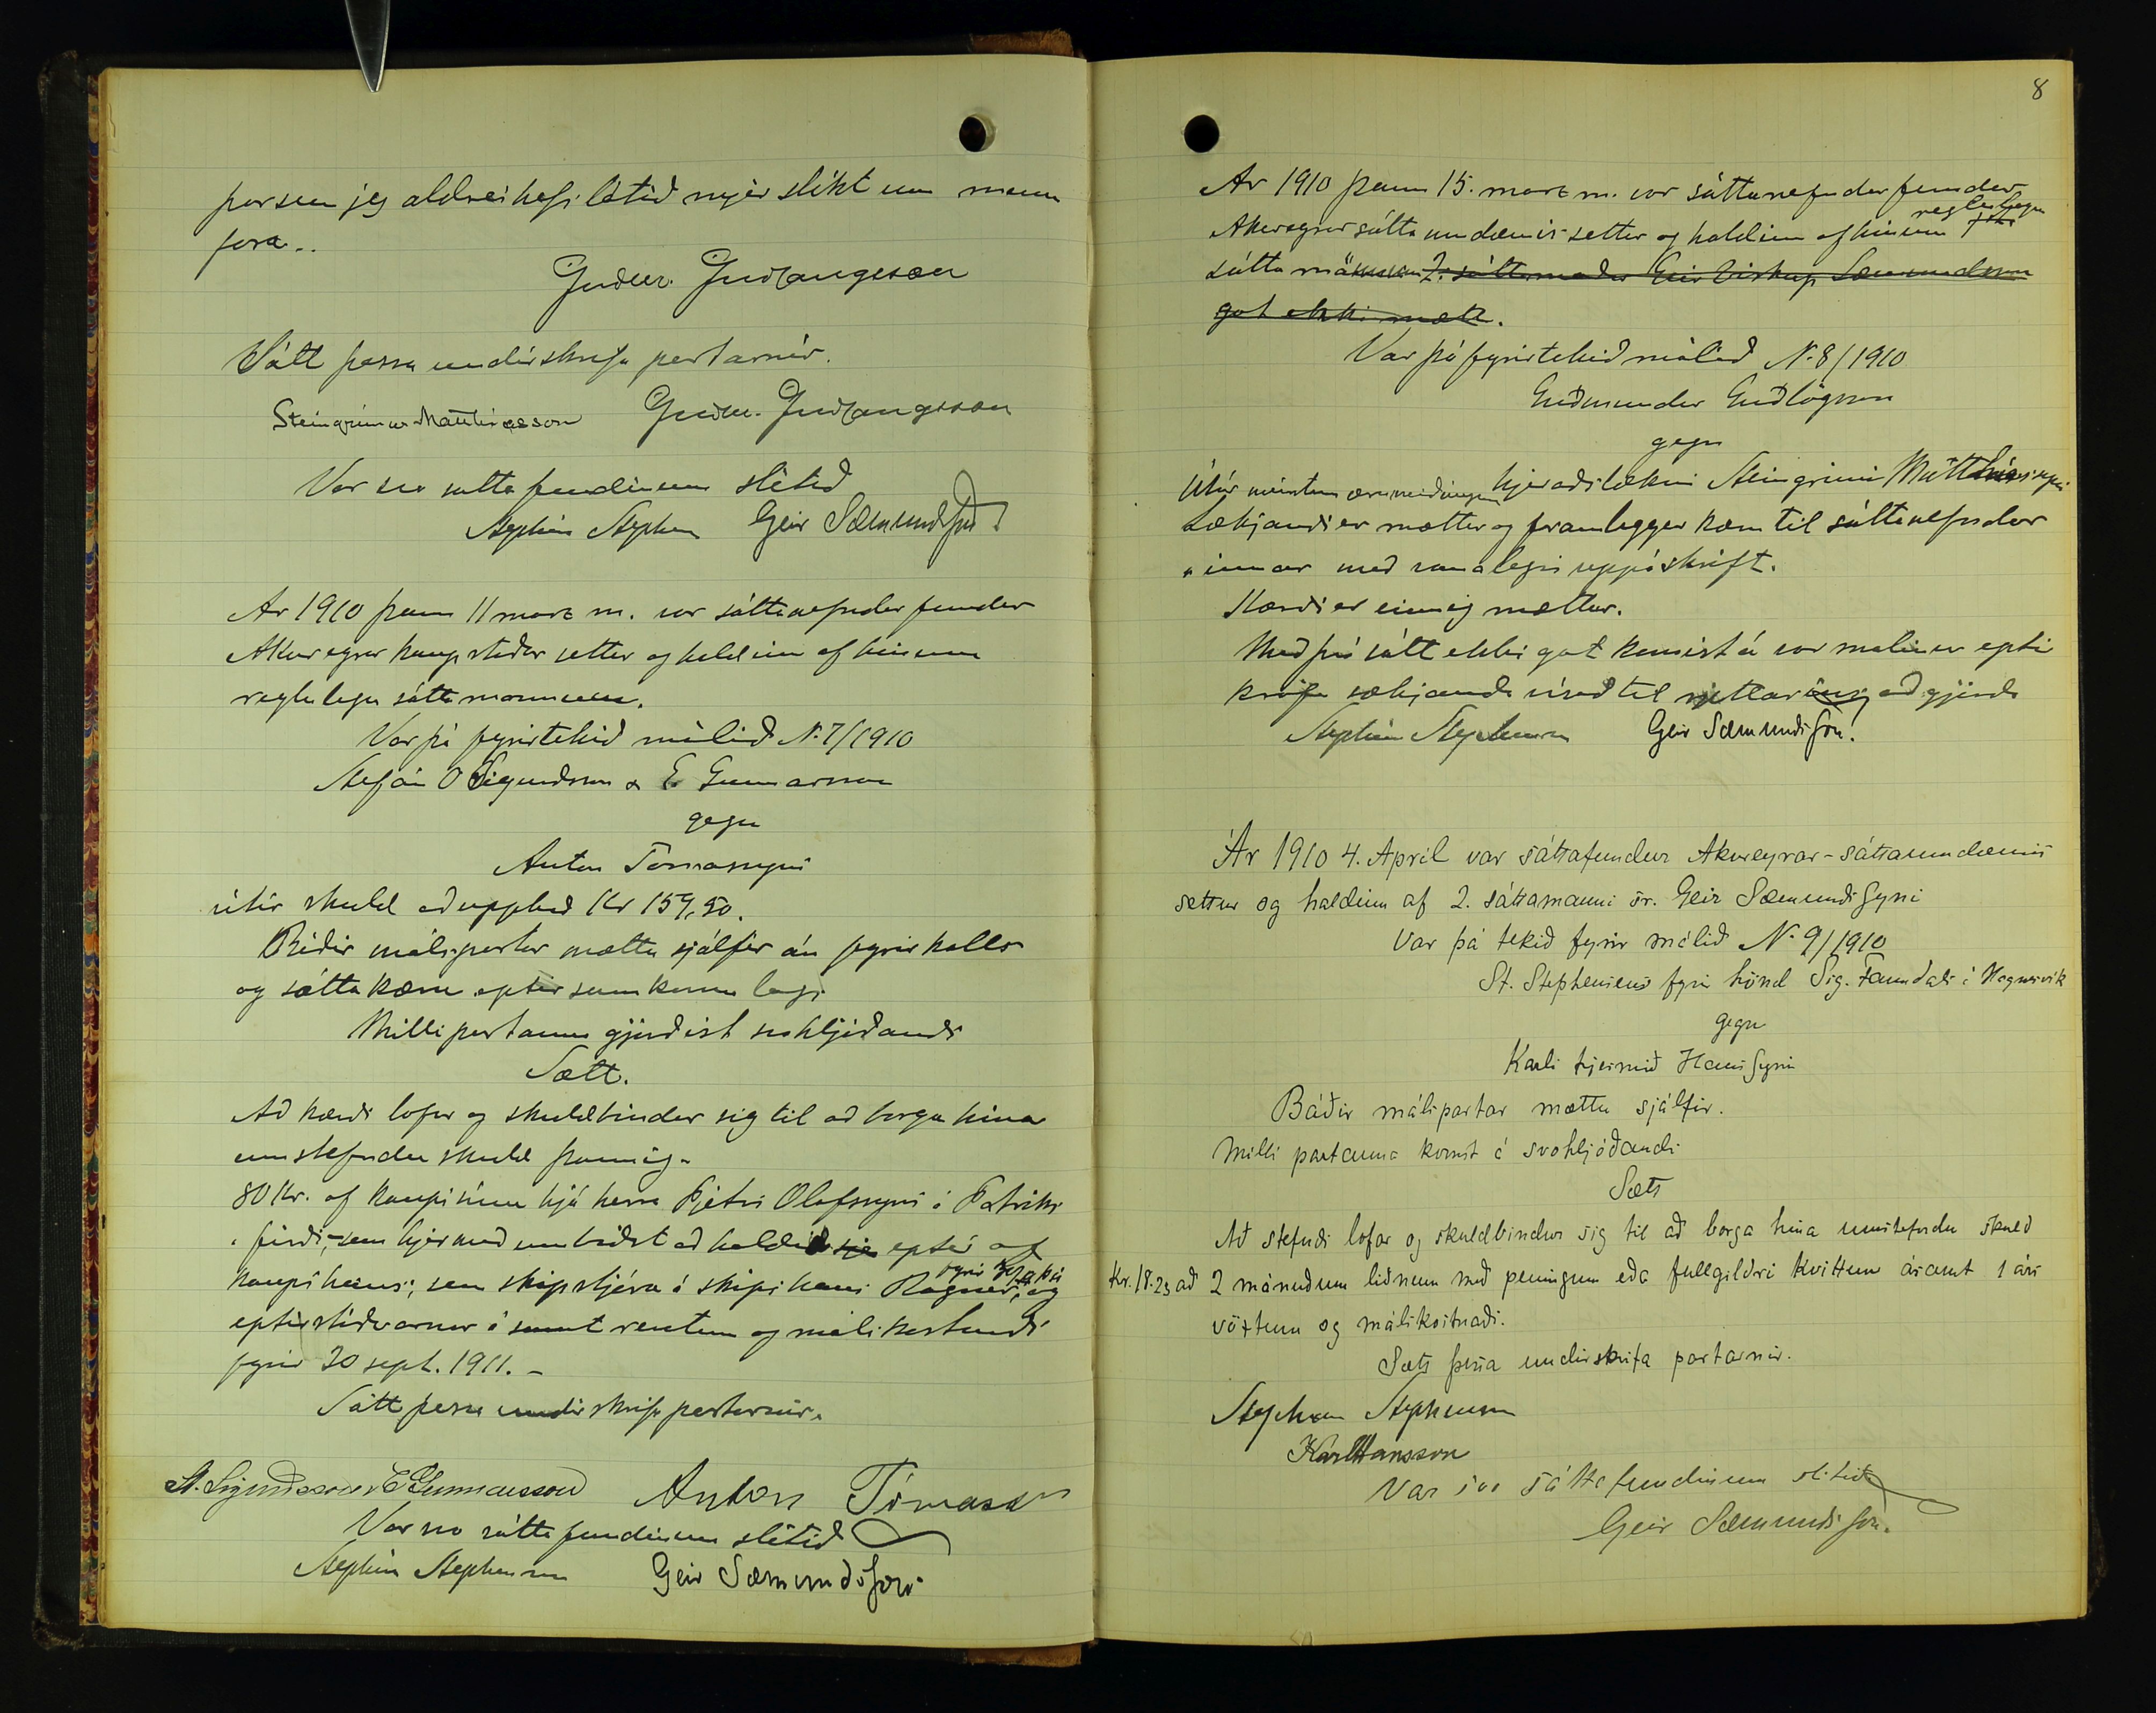 þar sem jeg aldrei hefi látið mjer slíkt um munn
fara..
Guðm. Guðlaugsson
Sátt þessa undirskrifa partarnir.
Steingrímur Matthíasson Guðm. Guðlaugsson
Var svo sáttafundinum slitið
Stephán Stephensen Geir Sæmundsson
Ár 1910 þann 11 marz m. var sáttanefndar fundur
Akureyrar kaupstaðar settur og haldinn af hinum
reglulegu sáttamönnum.
Var þá fyrirtekið málið N. 7/1910
Stefán O Sigurdsson & E Gunnarsson
gegn
Anton Tómassyni
útúr skuld að upphæð Kr 159,50.
Báðir málspartar mættu sjálfir án fyrirkalls
og sáttakæru eptir samkomulagi.
Milli partanna gjörðist svohljóðandi
Sætt.
Að kærði lofar og skuldbindur sig til að borga hina
umstefndu skuld þannig.
80 kr. af kaupi sínu hjá herra Pjetri Olafssyni á Patriks
firði, sem hjermeð umbiðst að halda sje eptir af
kaupi hans, sem skipstjóra á skipi hans Ragnar, og
eptirstöðvarnar ásamt rentum og málskostnaði
fyrir 20 sept. 1911. -
Sátt þessa undirskrifa partarnir.
St. Sigurðsson & E Gunnarsson Anton Tómasson
Var svo sáttafundinum slitið
Stephán Stephensen Geir Sæmundsson
8
Ár 1910 þann 15. marz m. var sáttanefndar fundur
Akureyrar sáttaumdæmis settur og haldinn af hinum reglulegu
sáttamönnum 2. sáttamaður Geir Viskup Sæmundsson
gat ekki mætt.
Var þá fyrirtekið málið N. 8/1910
Guðmundur Guðlögsson
gegn
Útúr meintum ærumeiðingum hjeraðslækni Steingrími Matthíassyni
Sækjandi er mættur og framleggur kæru til sáttanefndar
innar með vanalegri uppáskrift.
Kærði er einnig mættur.
Með því sátt ekki gat komist á var málinu eptir
kröfu sækjanda vísað til rjettar að gjörða
Stephán Stephensen Geir Sæmundsson.
Ár 1910 4. Apríl var sáttafundur Akureyrar-sáttaumdæmis
settur og haldinn af 2. sáttamanni sr. Geir Sæmundssyni
Var þá tekið fyrir málið N. 9/1910
St. Stephensens fyrir hönd Sig. Fanndals í Haganesvík
gegn
Karli Hanssyni
Báðir málspartar mættu sjálfir.
Milli partanna komst á svohljóðandi
Sætt
Að stefndi lofar og skuldbindur sig til að borga hina umstefndu skuld
Kr. 18.23 að 2 mánuðum liðnum með peningum eða fullgildri kvittun ásamt 1 árs
vöxtum og málskostnaði.
Sætt þessa undirskrifa partarnir.
Stephán Stephensen
Karl Hansson
Var svo sáttafundinum slitið
Geir Sæmundsson.